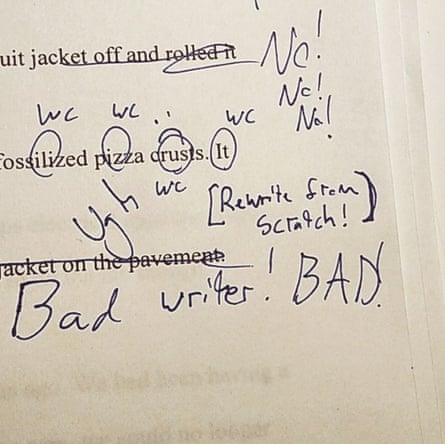 uit jacket off and rolled it No!
No!
wc wc wc No!
fossilized pizza crusts. It
wc
Ugh [Rewrite from
scratch!]
jacket on the pavement.
Bad writer! BAD!